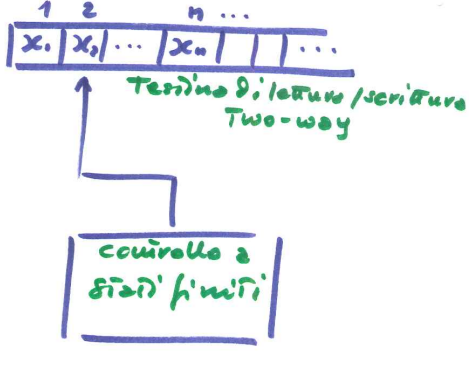 1 2 n ...
x₁ x₂ ... xₙ ...
Testina di lettura/scrittura
Two-way
controllo a
stati finiti